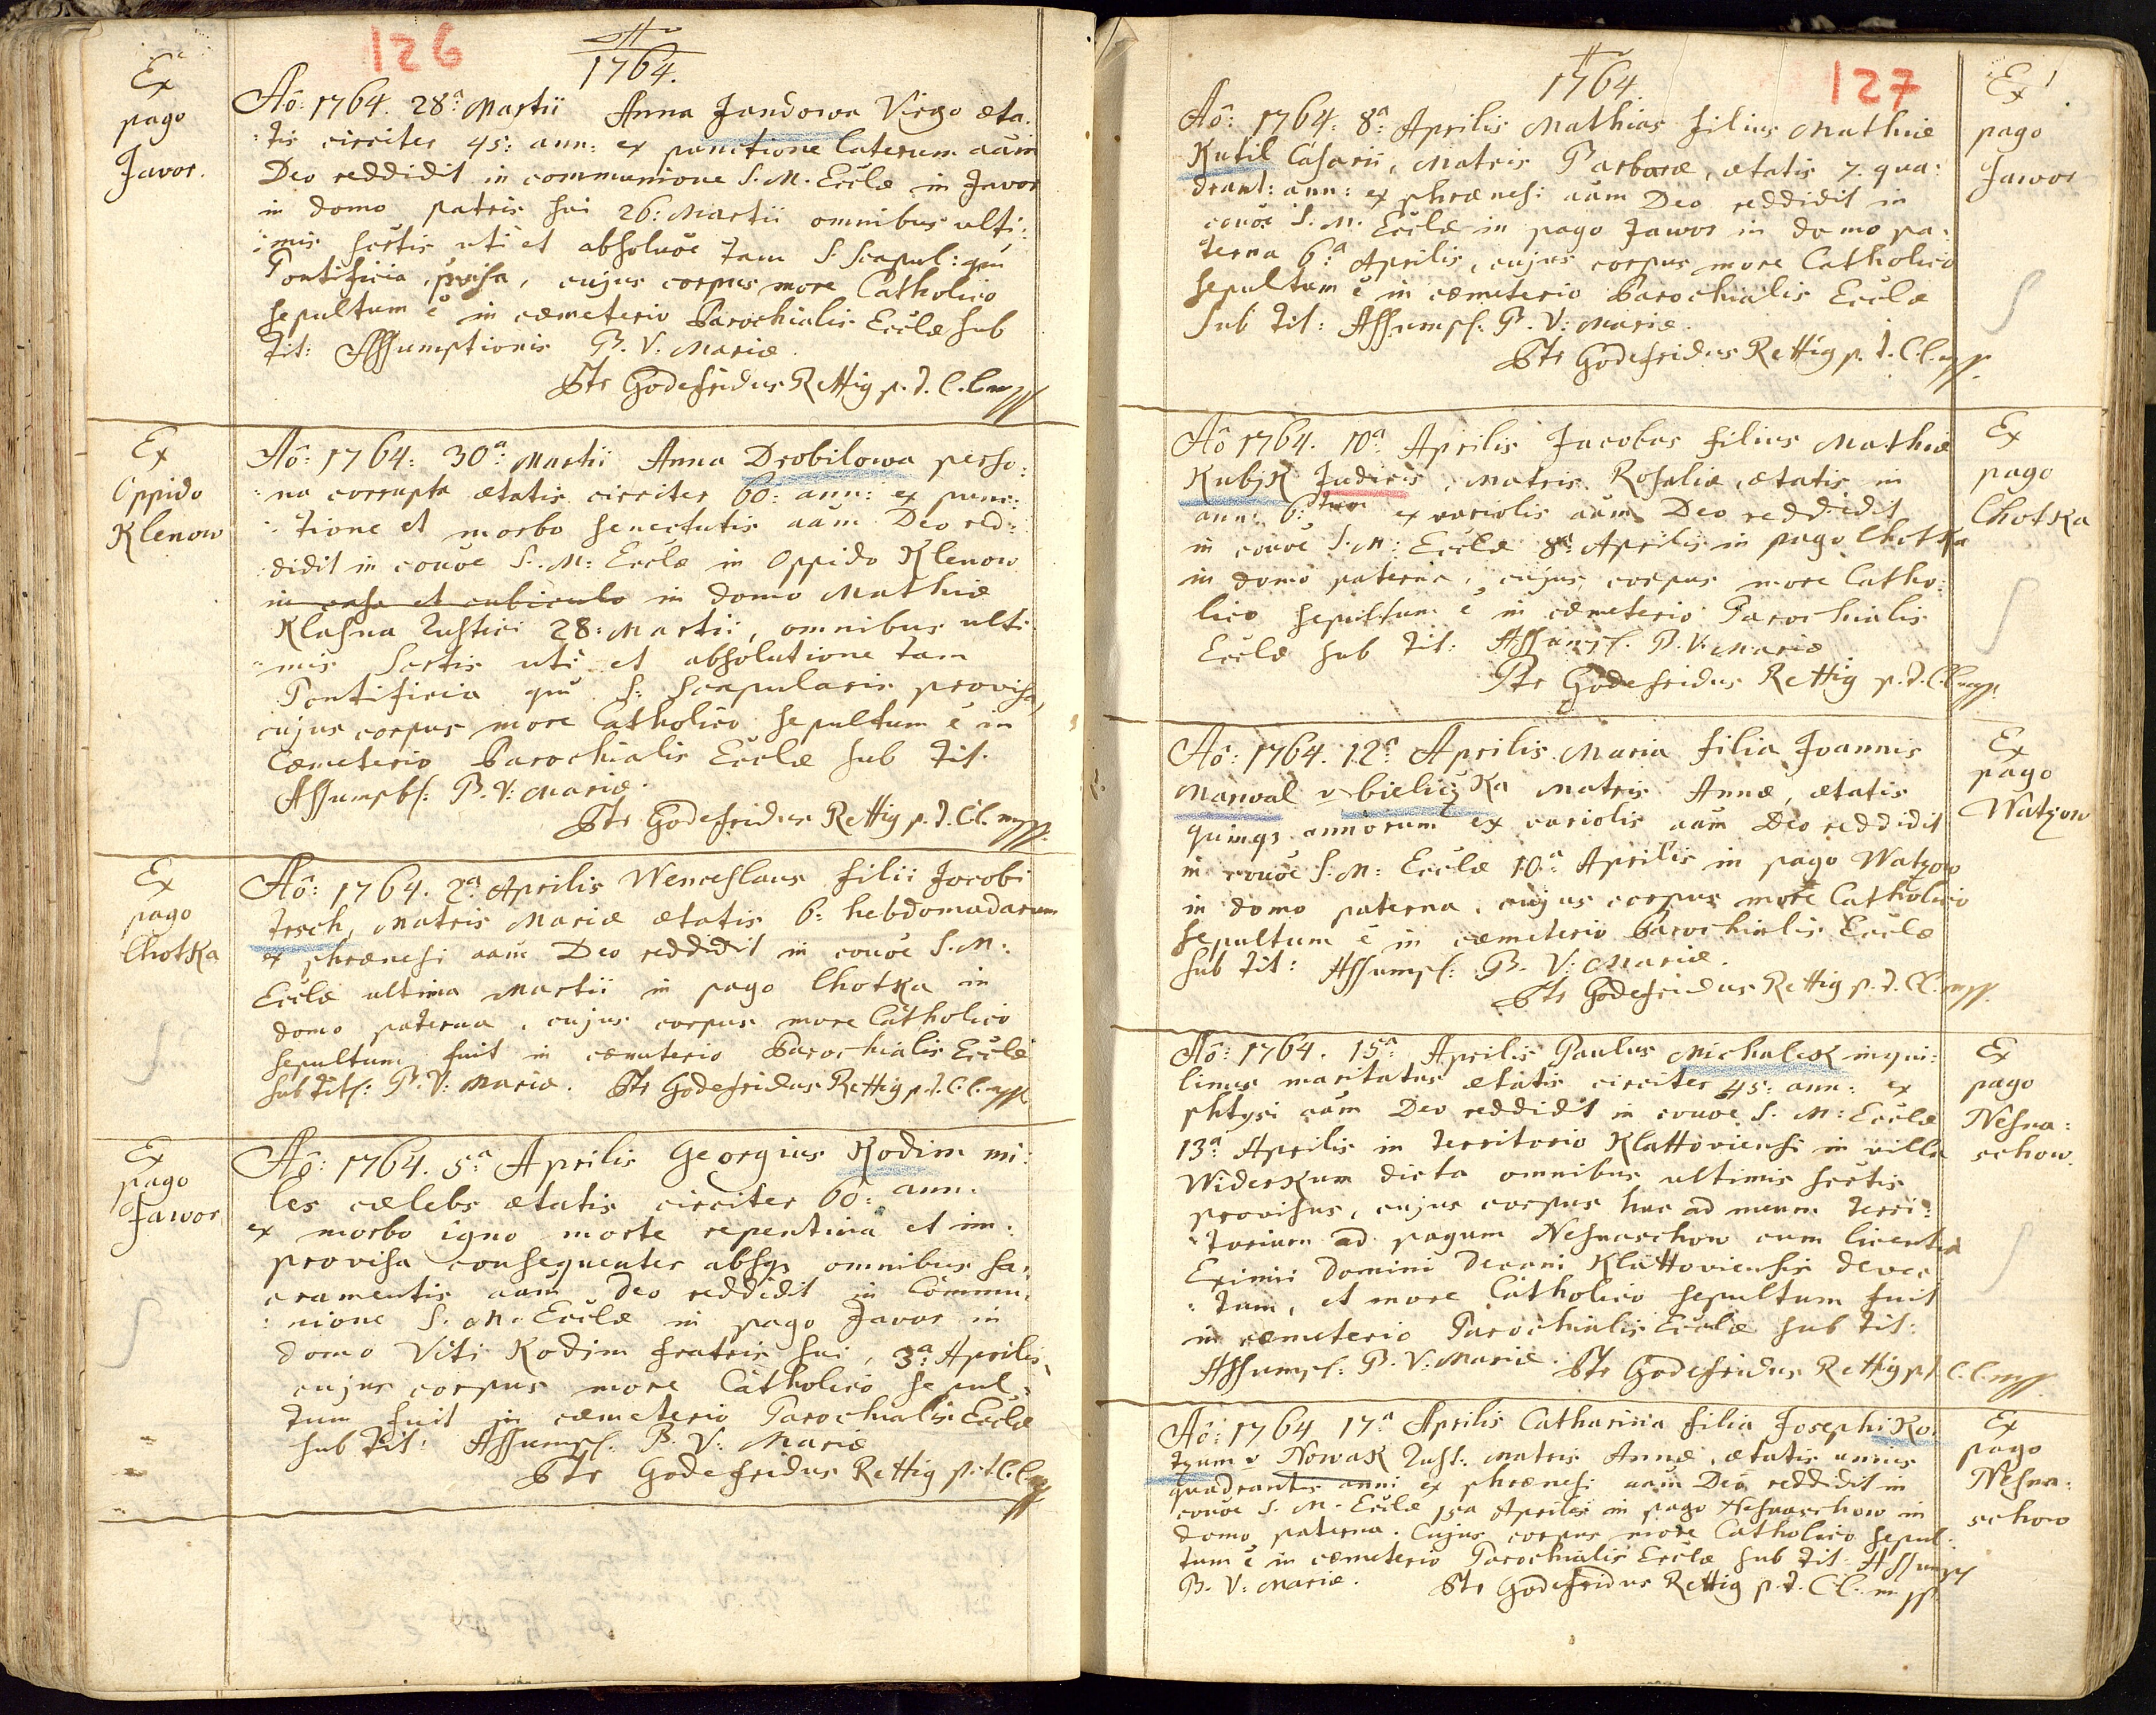 126
1764.
Ex
pago
Javor.
Aô: 1764. 28ª Martii Anna Jandowa Virgo æta:
:tis circiter 45: ann: ex punctione laterum aãm
Deo reddidit in communione S. M. Ecclæ in Javor
in domo patris sui 26: Martii omnibus ulti:
:mis sctis uti et absolũoe tam S. Scapul: qũ
Pontificia, provisa, cujus corpus more Catholico
sepultum ẽ in cœmeterio Parochialis Ecclæ sub
tit: Assumptionis B. V: Mariæ.
Ptr Godefridus Rettig p. t. C. C. mpp.
Ex
Oppido
Klenow
Aô: 1764: 30ª Martii Anna Drobilowa perso:
:na corrupta ætatis circiter 60: ann: ex punc:
:tione et morbo senectutis aãm Deo red:
:didit in coũoe S. M: Ecclæ in Oppido Klenow
in casa et cubiculo in domo Mathiæ
Klasna Rustici 28: Martii, omnibus ulti
:mis Sctis uti et absolutione tam
Pontificia qũ S: Scapularis provisa,
cujus corpus more Catholico sepultum ẽ in
Cœmeterio Parochialis Ecclæ sub tit.
Assumpt: B. V: Mariæ.
Ptr Godefridus Rettig p. t. C. C. mpp.
Ex
pago
Lhotka
Aô: 1764. 2ª Aprilis Wenceslaus filii Jacobi
Jesch, Matris Mariæ ætatis 6: hebdomadarum
ex phrænesi aãm Deo reddidit in coũoe S. M:
Ecclæ ultima Martii in pago Lhotka in
domo paterna, cujus corpus more Catholico
sepultum fuit in cœmeterio Parochialis Ecclæ
sub tit: B. V: Mariæ. Ptr Godefridus Rettig p. t. C. C. mpp.
Ex
pago
Jawor
Aô: 1764. 5ª Aprilis Georgius Kodim mi:
les cælebs ætatis circiter 60: ann:
ex morbo igno morte repentina et im:
provisa consequenter absq3 omnibus sa:
cramentis aãm Deo reddidit in Commu:
:nione S. M. Ecclæ in pago Javor in
domo Viti Kodim fratris sui, 3ª Aprilis,
cujus corpus more Catholico sepul:
tum fuit in cœmeterio Parochialis Ecclæ
sub tit: Assumps: B. V: Mariæ
Ptr Godefridus Rettig p. t. C. C. mpp.
1764.
127
Ex
pago
Jawor
Aô: 1764: 8ª Aprilis Mathias filius Mathiæ
Kutil Casarii, Matris Barbaræ, ætatis 7. qua:
drant: ann: ex phrænesi aãm Deo reddidit in
coũoe S. M. Ecclæ in pago Jawor in domo pa:
terna 6ª Aprilis, cujus corpus more Catholico
sepultum ẽ in cœmeterio Parochialis Ecclæ
sub tit: Assumps: B. V: Mariæ.
Ptr Godefridus Rettig p. t. C. C. mpp.
Ex
pago
Lhotka
Aô 1764. 10ª Aprilis Jacobus filius Mathiæ
Kubjk Judicis, Matris Rosaliæ, ætatis in
ann: 6: ex variolis aãm Deo reddidit
in coũoe S. M: Ecclæ 8ª Aprilis in pago Lhotka
in domo paterna, cujus corpus more Catho:
lico sepultum ẽ in cœmeterio Parochialis
Ecclæ sub tit: Assumps: B. V. Mariæ
Ptr Godefridus Rettig p. t. C. C. mpp.
Ex
pago
Watzow
Aô: 1764. 12ª Aprilis Maria filia Joannis
Marwal v bieliczKa Matris Annæ, ætatis
quinq3 annorum ex variolis aãm Deo reddidit
in coũoe S. M: Ecclæ 10ª Aprilis in pago Watzow
in domo paterna, cujus corpus more Catholico
sepultum ẽ in cœmeterio Parochialis Ecclæ
sub tit: Assumps: B. V: Mariæ.
Ptr Godefridus Rettig p. t. C. C. mpp.
Ex
pago
Nesna:
schow.
Aô: 1764. 15ª Aprilis Paulus Michalek inqui:
linus maritatus ætatis circiter 45: ann: ex
phtysi aãm Deo reddidit in coũoe S. M: Ecclæ
13ª Aprilis in territorio Klattoviensi in villa
Widerkum dicta omnibus ultimis sctis
provisus, cujus corpus huc ad meum terri:
:torium ad pagum Nesnaschow cum licentia
Eximii Domini Decani Klattoviensis devec
:tum, et more Catholico sepultum fuit
in cœmeterio Parochialis Ecclæ sub tit:
Assumps: B. V: Mariæ. Ptr Godefridus Rettig p. t. C. C. mpp.
Ex
pago
Nesna:
schow
Aô: 1764 17ª Aprilis Catharina filia Josephi Ko:
tzum v Nowak Rust: Matris Annæ, ætatis unius
quadrantis anni ex phrænesi aãm Deo reddidit in
coũoe S. M. Ecclæ 15ta Aprilis in pago Nesnaschow in
domo paterna. Cujus corpus more Catholico sepul:
tum ẽ in cœmeterio Parochialis Ecclæ sub tit: Assumps
B. V: Mariæ. Ptr Godefridus Rettig p. t. C. C. mpp.